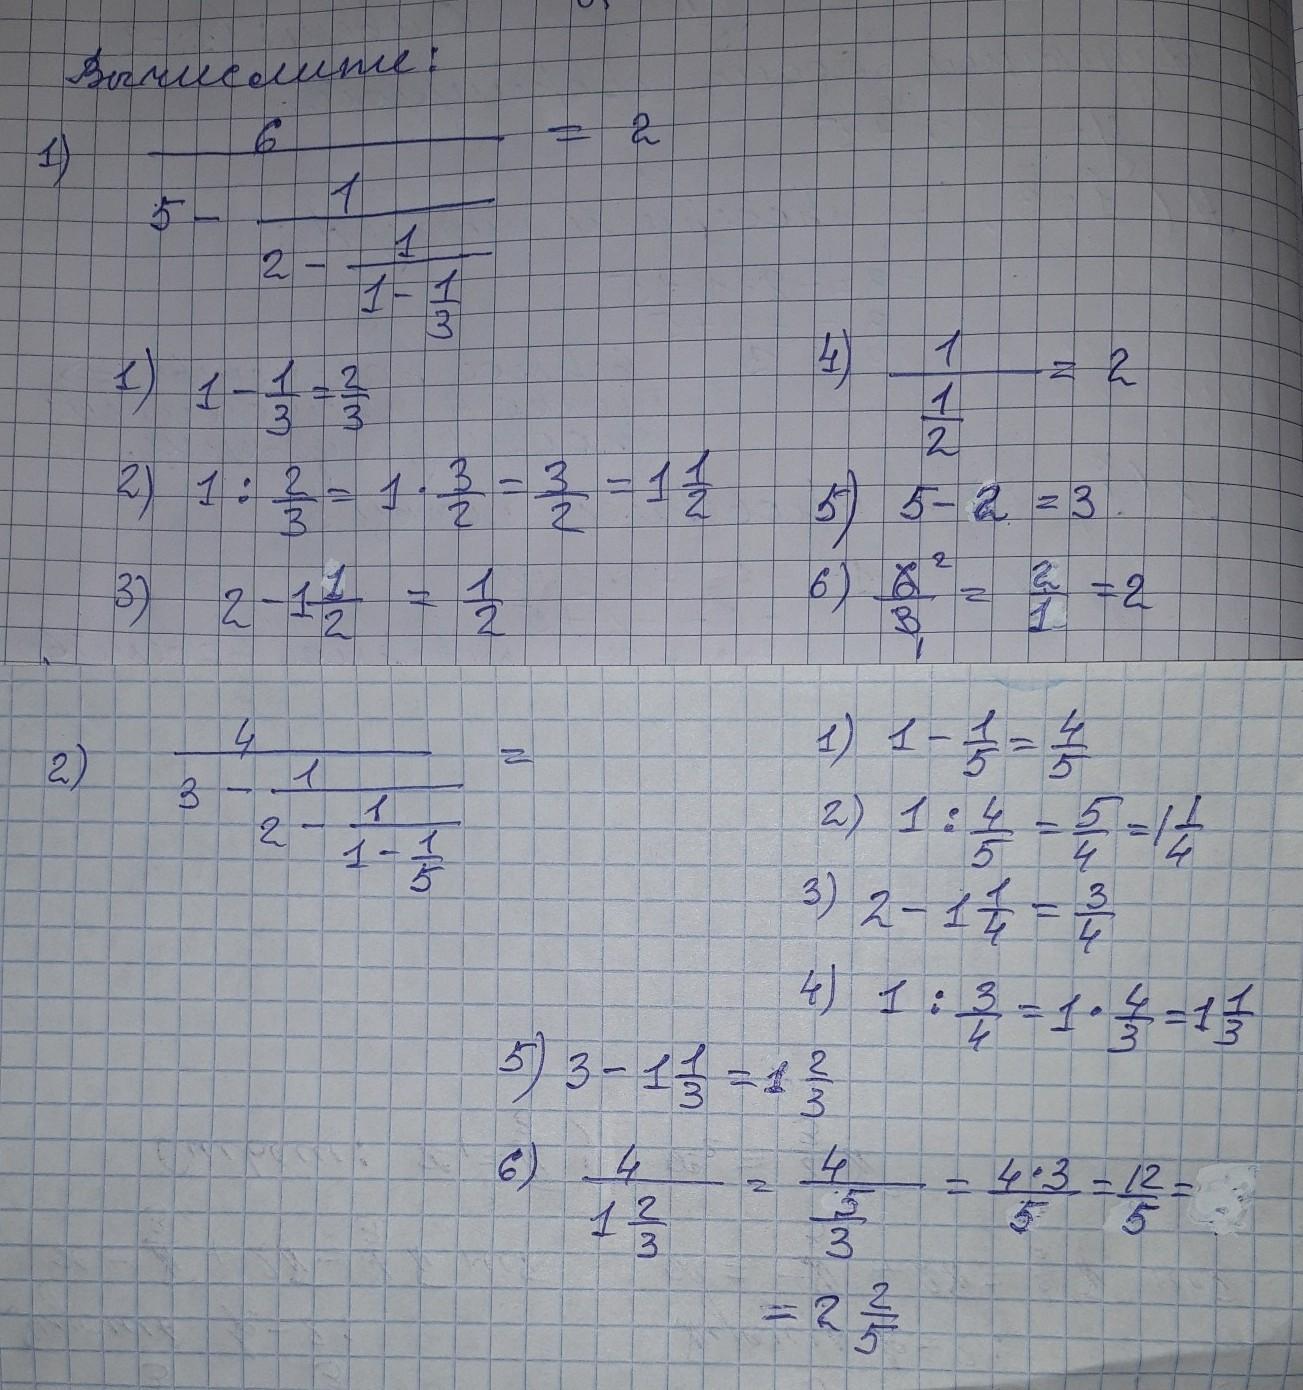 Вычислите:
1) 6/(5 - 1/(2 - 1/(1 - 1/3))) = 2
1) 1 - 1/3 = 2/3
2) 1 : 2/3 = 1 · 3/2 = 3/2 = 1 1/2
3) 2 - 1 1/2 = 1/2
4) 1/(1/2) = 2
5) 5 - 2 = 3
6) 6 2/3 1 = 2/1 = 2
2) 4/(3 - 1/(2 - 1/(1 - 1/5))) =
1) 1 - 1/5 = 4/5
2) 1 : 4/5 = 5/4 = 1 1/4
3) 2 - 1 1/4 = 3/4
4) 1 : 3/4 = 1 · 4/3 = 1 1/3
5) 3 - 1 1/3 = 1 2/3
6) 4/(1 2/3) = 4/(5/3) = (4·3)/5 = 12/5 =
= 2 2/5